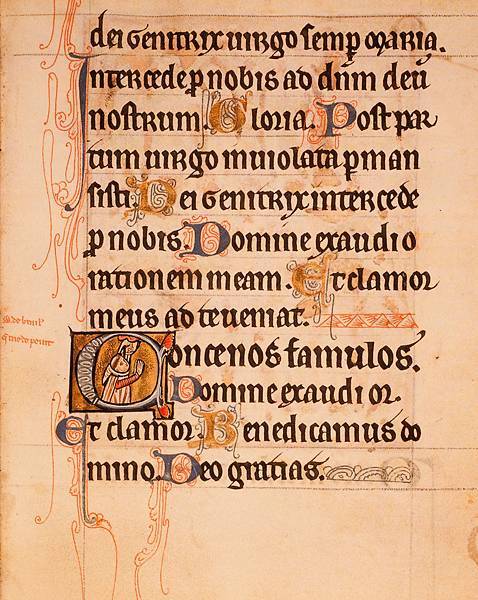 dei genitrix uirgo semꝑ maria.
Intercede ꝓ nobis ad dn̄m deū
nostrum. Gloria. Post par
tum uirgo inuiolata ꝑman
sisti. Dei genitrix intercede
ꝓ nobis. Domine exaudi o
rationem meam. Et clamor
meus ad te ueniat.
w. de brail'
q' me depeint
Concenos famulos.
Domine exaudi or.
Et clamor. Benedicamus do
mino. Deo gratias.